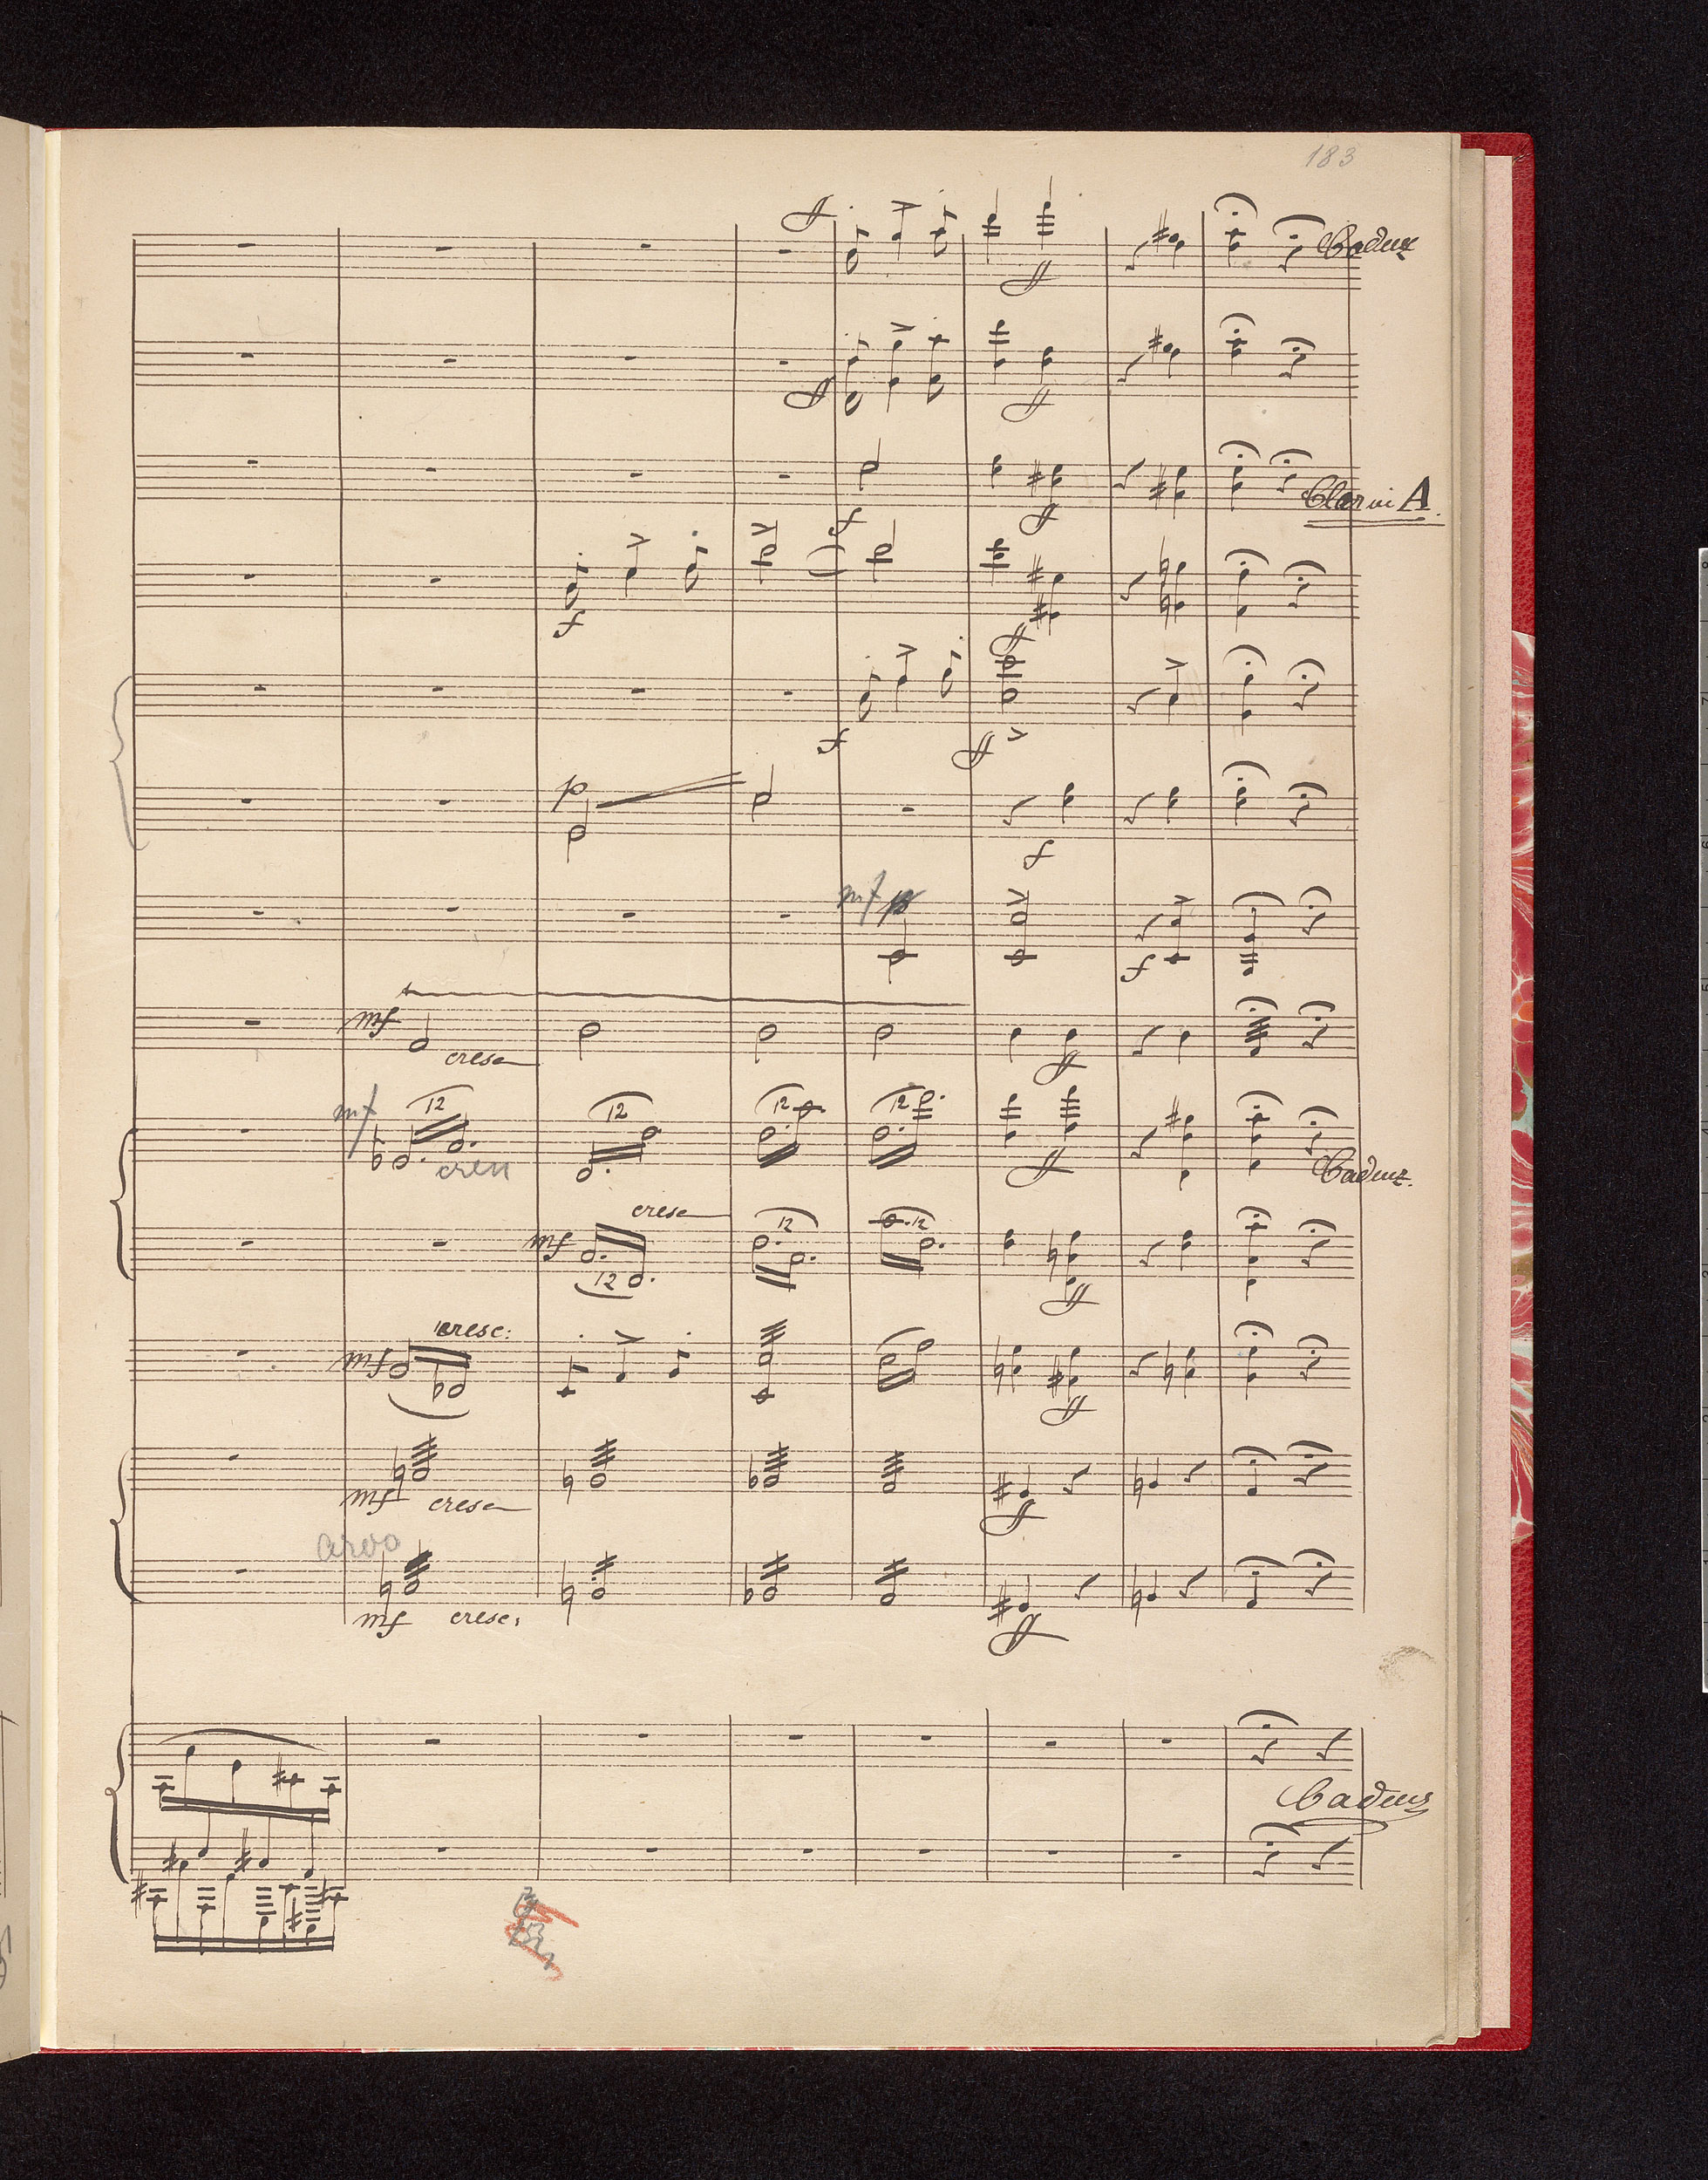 183
ff
Cadenz
ff
ff
ff
f
ff
Clar in A.
f
ff
f
ff
p
f
mf
f
mf
cresc
ff
mf
12
12
12
12
cresc
ff
Cadenz.
cresc
mf
12
12
12
ff
cresc:
mf
ff
mf
cresc
ff
arco
mf
cresc:
ff
Cadenz